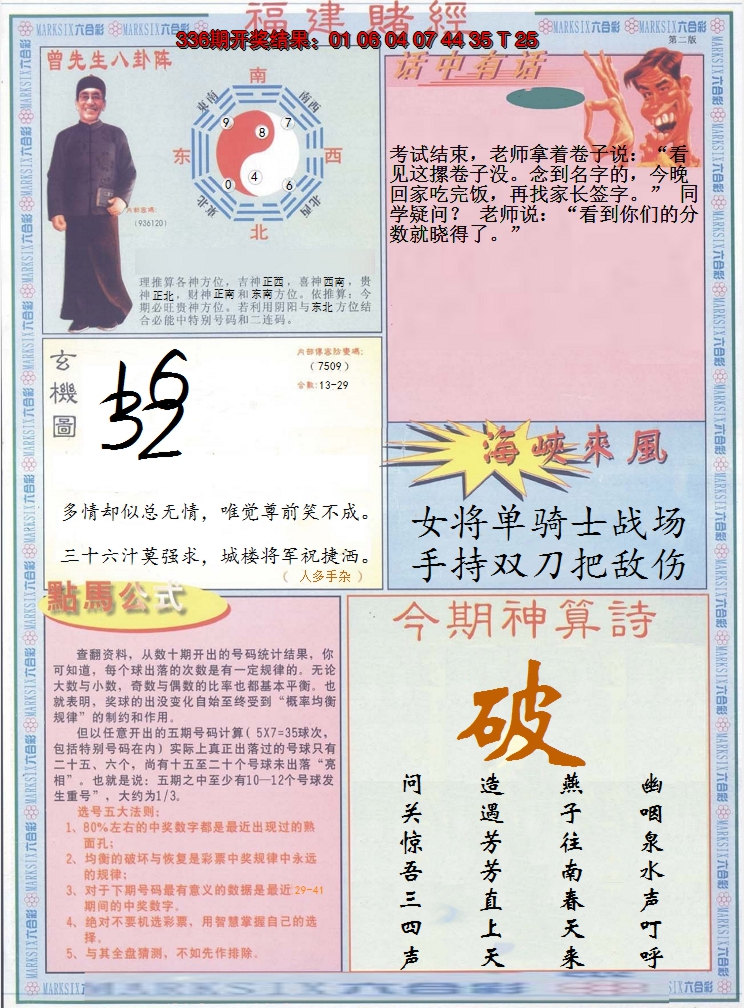 福建賭經
336期开奖结果：01 06 04 07 44 35 T 25
第二版
MARKSIX六合彩
曾先生八卦阵
南
东南
南西
9
8
7
东
西
0
4
6
东北
北西
北
内部密碼:
(936120)
理推算各神方位，吉神正西，喜神西南，贵
神正北，财神正南和东南方位。依推算：今
期必旺贵神方位。若利用阴阳与东北方位结
合必能中特别号码和二连码。
话中有话
考试结束，老师拿着卷子说：“看
见这摞卷子没。念到名字的，今晚
回家吃完饭，再找家长签字。” 同
学疑问？ 老师说：“看到你们的分
数就晓得了。”
玄機圖
内部傳密防密碼:
(7509)
合數:13-29
多情却似总无情，唯觉尊前笑不成。
三十六汁莫强求，城楼将军祝捷洒。
（ 人多手杂 ）
海峽來風
女将单骑士战场
手持双刀把敌伤
點馬公式
查翻资料，从数十期开出的号码统计结果，你
可知道，每个球出落的次数是有一定规律的。无论
大数与小数，奇数与偶数的比率也都基本平衡。也
就表明，奖球的出没变化自始至终受到“概率均衡
规律”的制约和作用。
但以任意开出的五期号码计算( 5X7=35球次，
包括特别号码在内) 实际上真正出落过的号球只有
二十五、六个，尚有十五至二十个号球未出落“亮
相”。也就是说：五期之中至少有10—12个号球发
生重号”，大约为1/3。
选号五大法则:
1、80%左右的中奖数字都是最近出现过的熟
面孔;
2、均衡的破坏与恢复是彩票中奖规律中永远
的规律;
3、对于下期号码最有意义的数据是最近29-41
期间的中奖数字。
4、绝对不要机选彩票，用智慧掌握自己的选
择。
5、与其全盘猜测，不如先作排除。
今期神算詩
破
幽咽泉水声叮呼
燕子往南春天来
造遇芳芳直上天
问关惊吾三四声